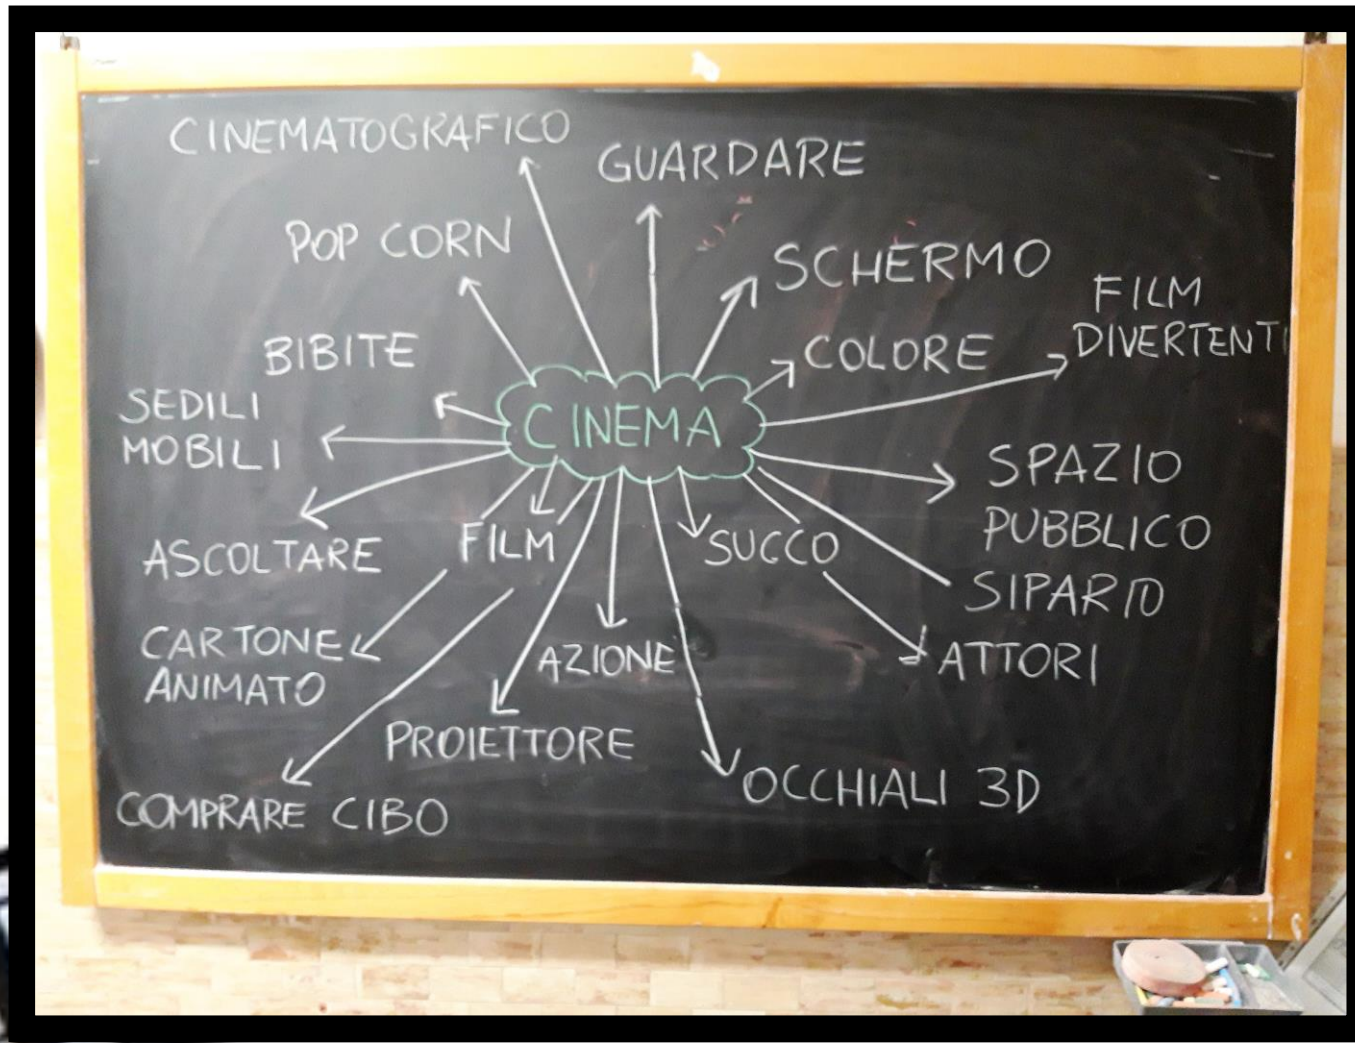 CINEMATOGRAFICO
GUARDARE
POP CORN
SCHERMO
FILM
DIVERTENTI
BIBITE
COLORE
SEDILI
MOBILI
CINEMA
SPAZIO
PUBBLICO
ASCOLTARE
FILM
SUCCO
SIPARIO
CARTONE
ANIMATO
AZIONE
ATTORI
PROIETTORE
OCCHIALI 3D
COMPRARE CIBO